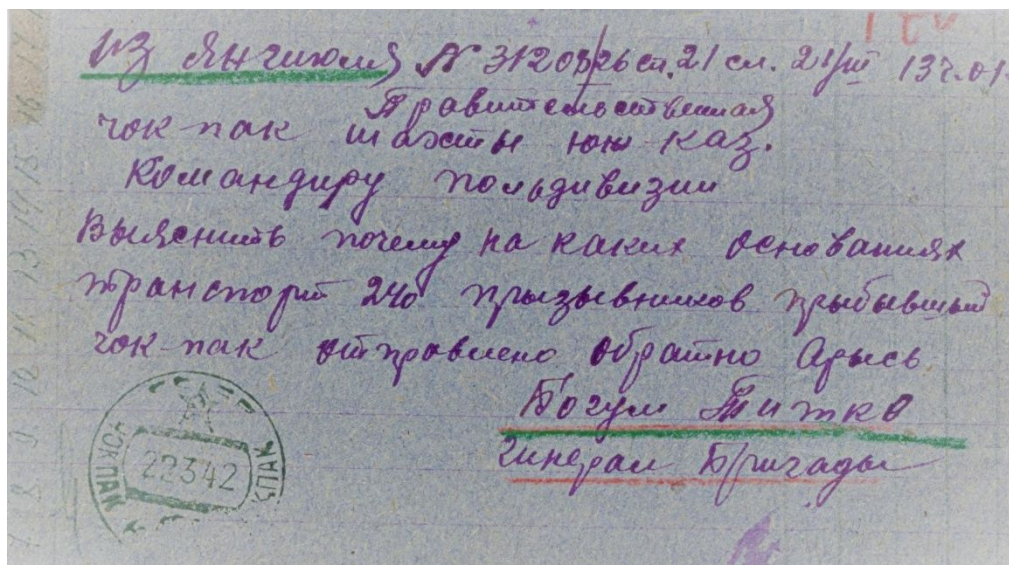 из Янгиюля № 31203/26 сл. 21 сл. 21/III 13ч.01
Правительственная
чок-пак шахты юж каз.
Командиру польдивизии
Выяснить почему на каких основаниях
транспорт 240 призывников прыбывший
чок-пак отправлено обратно Арысь
Богуш Тишко
Гинерал Бригады
ЧОКПАК
22342